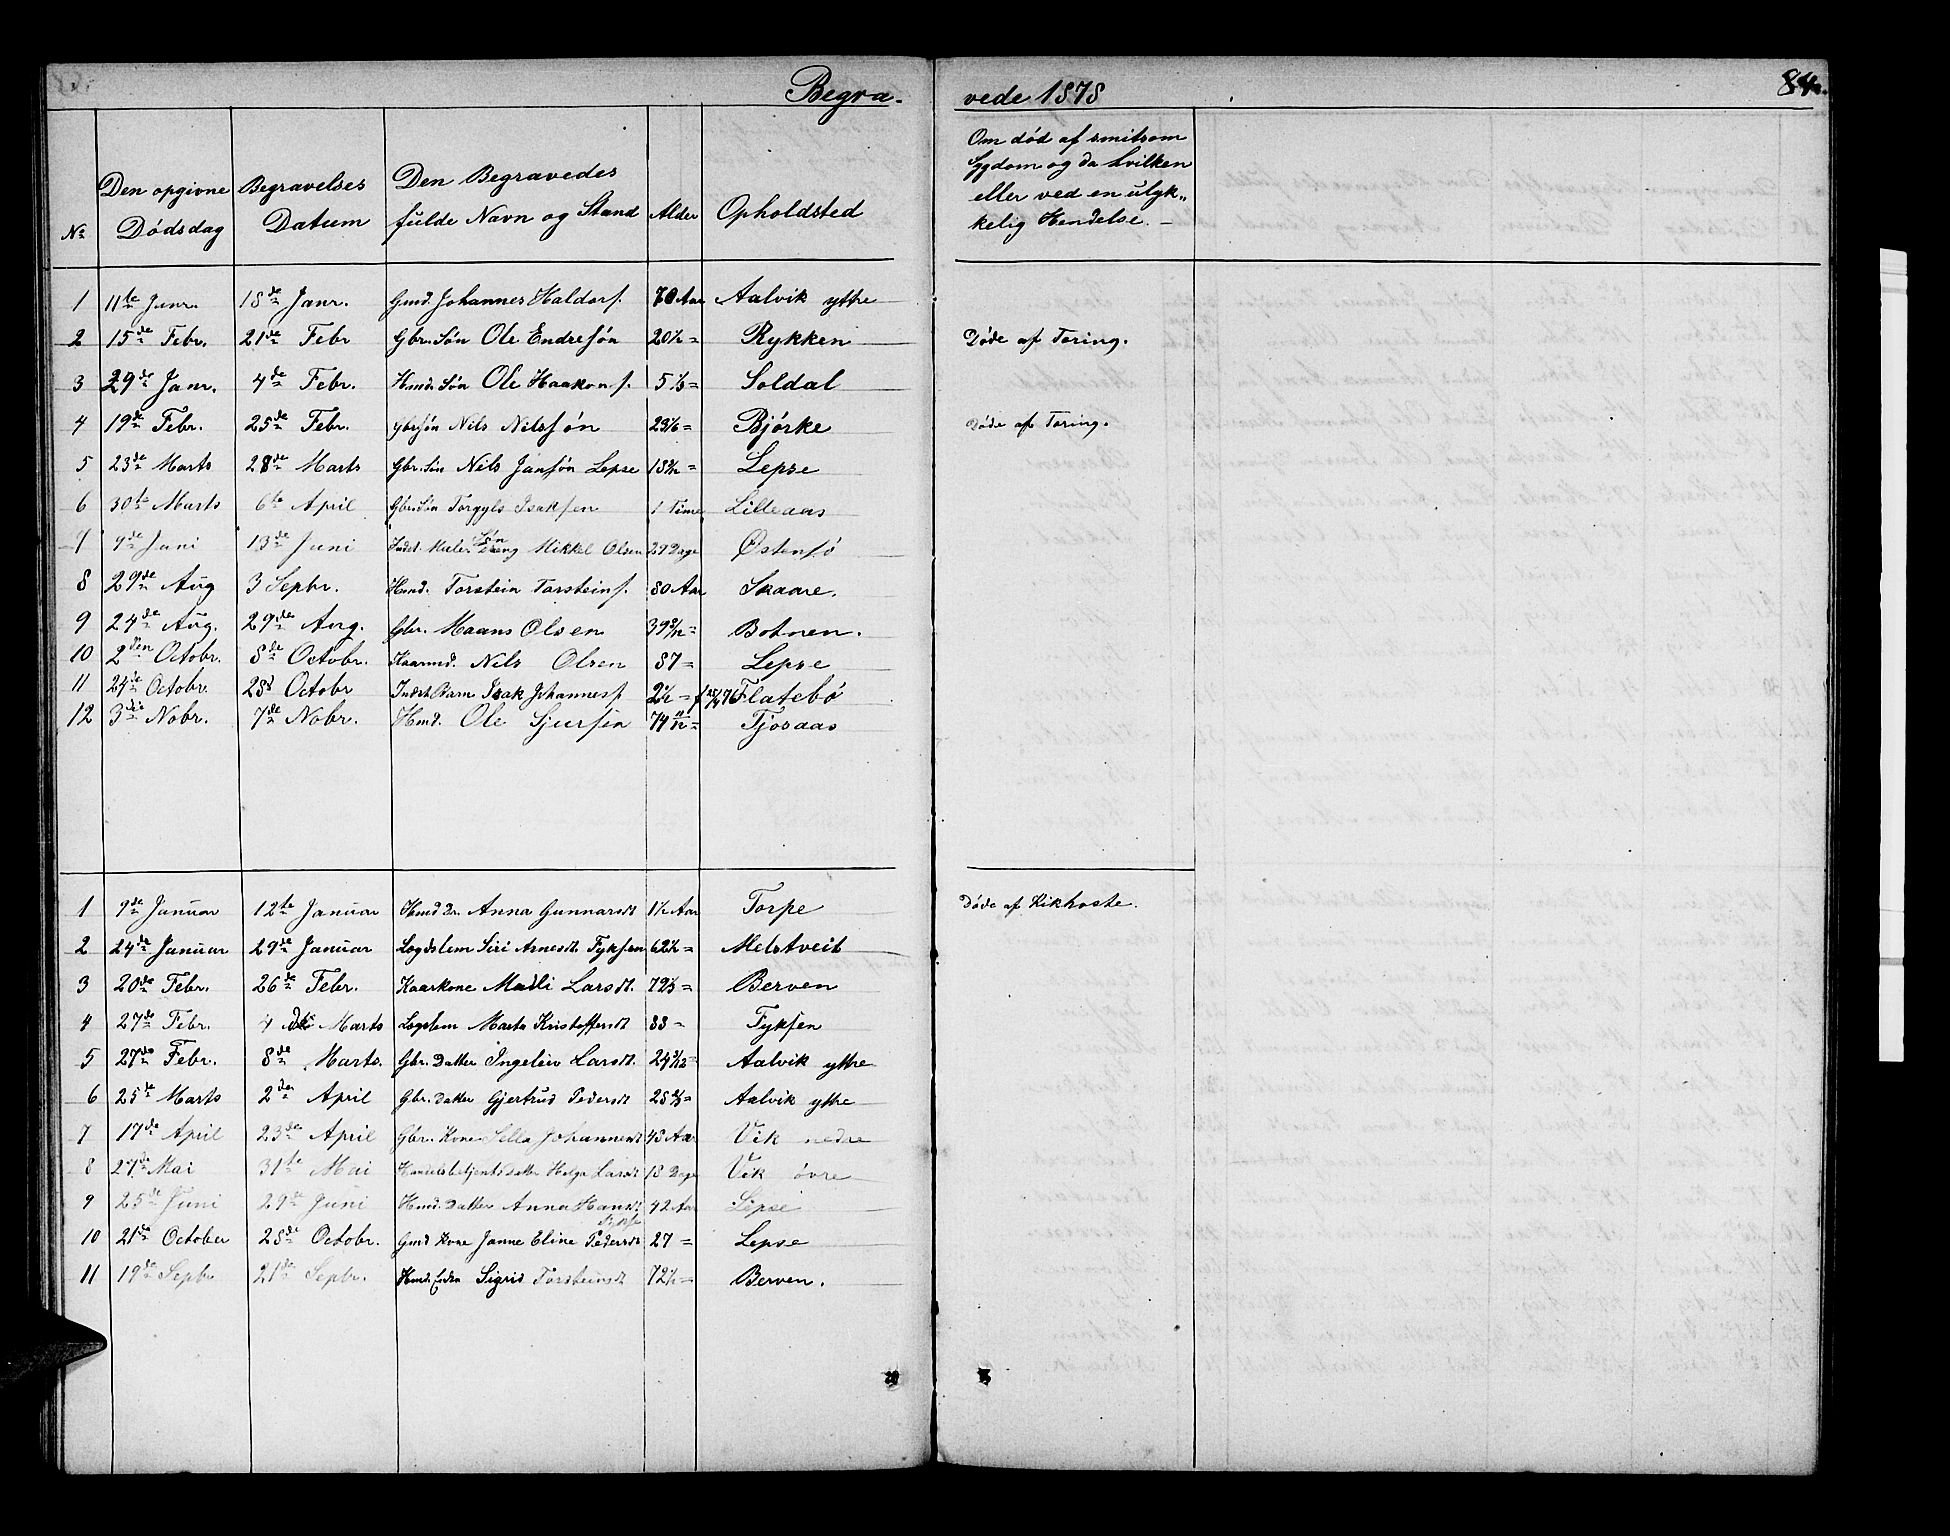 Begra-
vede 1878
84.
No
Den opgivne Dødsdag
Begravelses Datum
Den Begravedes fulde Navn og Stand
Alder
Opholdsted
Om død af smitsom
Sygdom og da hvilken
eller ved en ulyk-
kelig Hendelse. -
1 11te Janr. 18de Janr. Gmd. Johannes Haldors. 70 Aar Aalvik yttre
2 15de Febr. 21de Febr Gbr. Søn Ole Endresøn 20½ = Rykken Døde af Tæring.
3 29de Janr. 4de Febr. Hmd. Søn Ole Haakons. 5 1/3 = Soldal
4 19de Febr. 25de Febr. Gbrsøn Nils Nilssøn 23 1/6 = Bjørke Døde af Tæring.
5 23de Marts 28de Marts Gbr. Søn Nils Jansøn Lepse = Lepse
6 30te Marts 6te April Gbr. Søn Torgyls Isaksen 1 Time Lilleaas
7 9de Juni 13de Juni Søn Mikkel Olsen 29 Dage Østensø
8 29de Aug 3 Sepbr. Hmd. Torstein Torsteins. 80 Aar Skaare.
9 24de Aug. 29de Aug. Gbr. Maans Olsen = Botnen.
10 2den Octobr. 8de Octobr. Kaarmd. Nils Olsen 87 = Lepse
11 24de Octobr. 28d Octobr Inderst Barn Isak Johanness. 2½ = f 76 Flatebø
12 3die Nobr. 7de Nobr. Hmd. Ole Sjursøn 74 11/12 = Tjosaas
1 9de Januar 12te Januar Hmd Dr. Anna Gunnarsdt 1½ Aar Torpe Døde af Kikhoste.
2 24de Januar 29de Januar Lægdslem Siri Arnesdt. Fyksen 62½ = Melstveit
3 20de Febr. 26de Febr. Kaarkone Marli Larsdt. 72 1/3 = Berven
4 27de Febr. 4de Marts Lægslem Marta Kristoffersdt 83 = Fyksen
5 27de Febr. 8de Marts. Gbr. Datter Ingeleiv Larsdt. = Aalvik yttre
6 25de Marts 2den April Gbr. Datter Gjertrud Pedersdt 28 2/3 = Aalvik yttre
7 17de April 23de April Gbr. Kone Sella Johannesdt 43 Aar Vik nedre
8 27de Mai 31te Mai Handelsbetjents datter Helga Larsdt 18 Dage Vik øvre
9 25de Juni 29de Juni Hmd. Datter Anna Hansdt 42 Aar Lepse
10 21de October 28de Octobr. Gmd Kone Janne Eline Pedersdt 27 = Lepse
11 19de Sepbr 21de Sepbr. Hmd. Enka Sigrid Torsteinsdt 72½ = Berven.